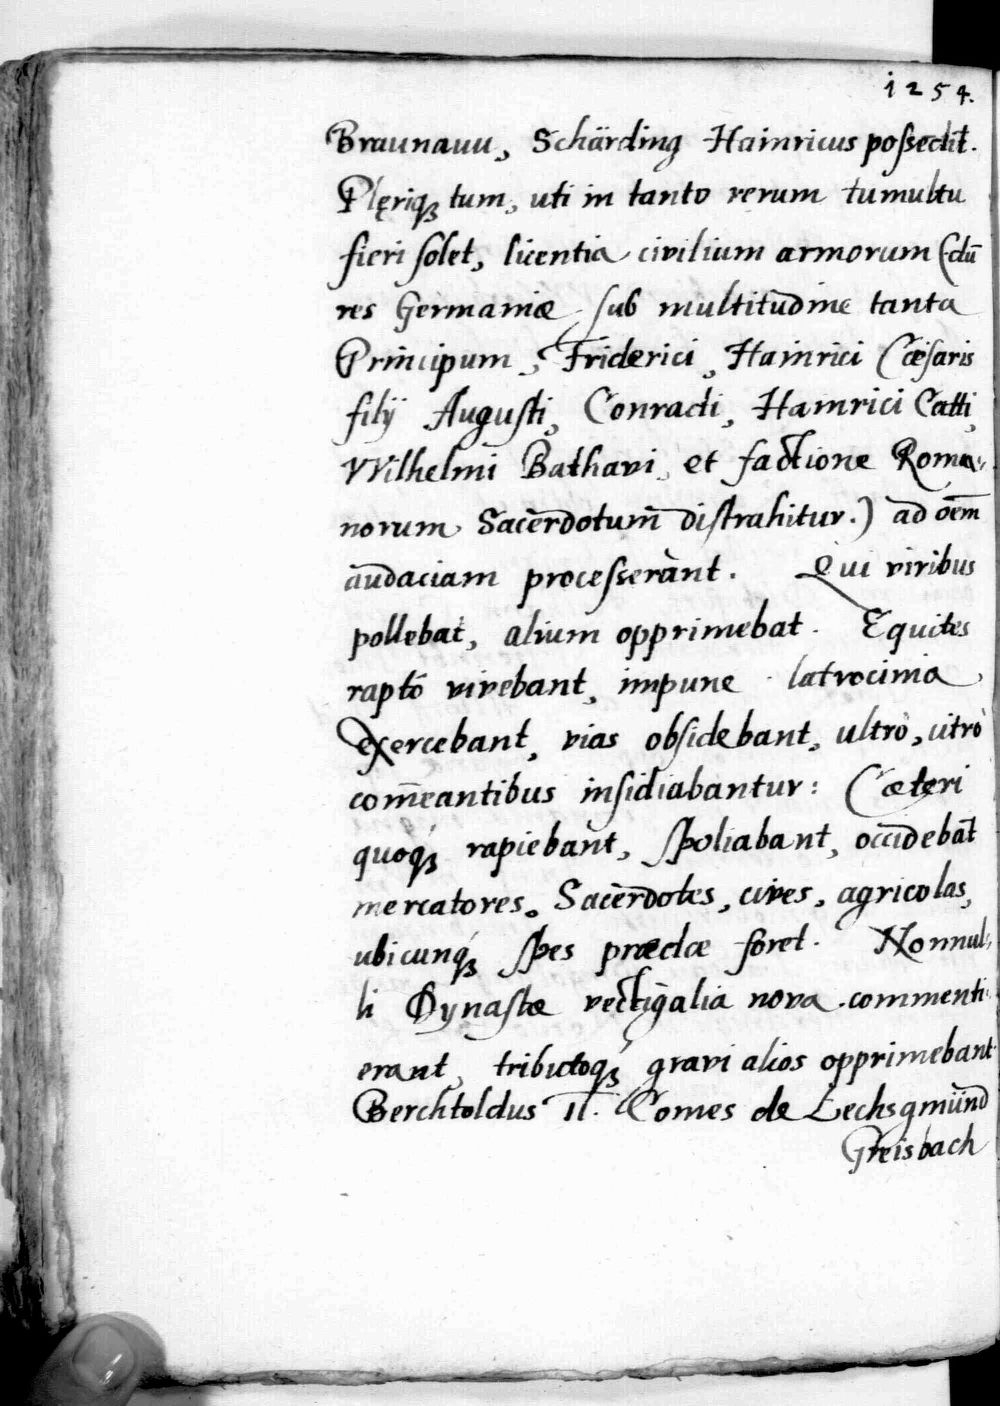 1254.
Braunauu, Schärding Hainricus possedit.
Plęriqꝫ tum, uti in tanto rerum tumultu
fieri solet, licentia civilium armorum (dū
res Germaniæ sub multitudine tanta
Principum, Friderici, Hainrici Cæsaris
filij Augusti, Conradi, Hainrici Catti,
VVilhelmi Bathavi, et factione Roma-
norum Sacerdotum distrahitur.) ad oēm
audaciam processerant. Qui viribus
pollebat, alium opprimebat. Equites
raptò vivebant, impune latrocinia
exercebant, vias obsidebant, ultrò, citrò
com̄eantibus insidiabantur: Cætęri
quoqꝫ́ rapiebant, spoliabant, occidebāt
mercatores. Sacerdotes, cives, agricolas,
ubicunqꝫ́ spes prædæ foret. Nonnul-
li Dynastæ vectigalia nova commenti
erant, tributoqꝫ́ gravi alios opprimebant
Berchtoldus II. Comes de Lechsgmünd
Greisbach